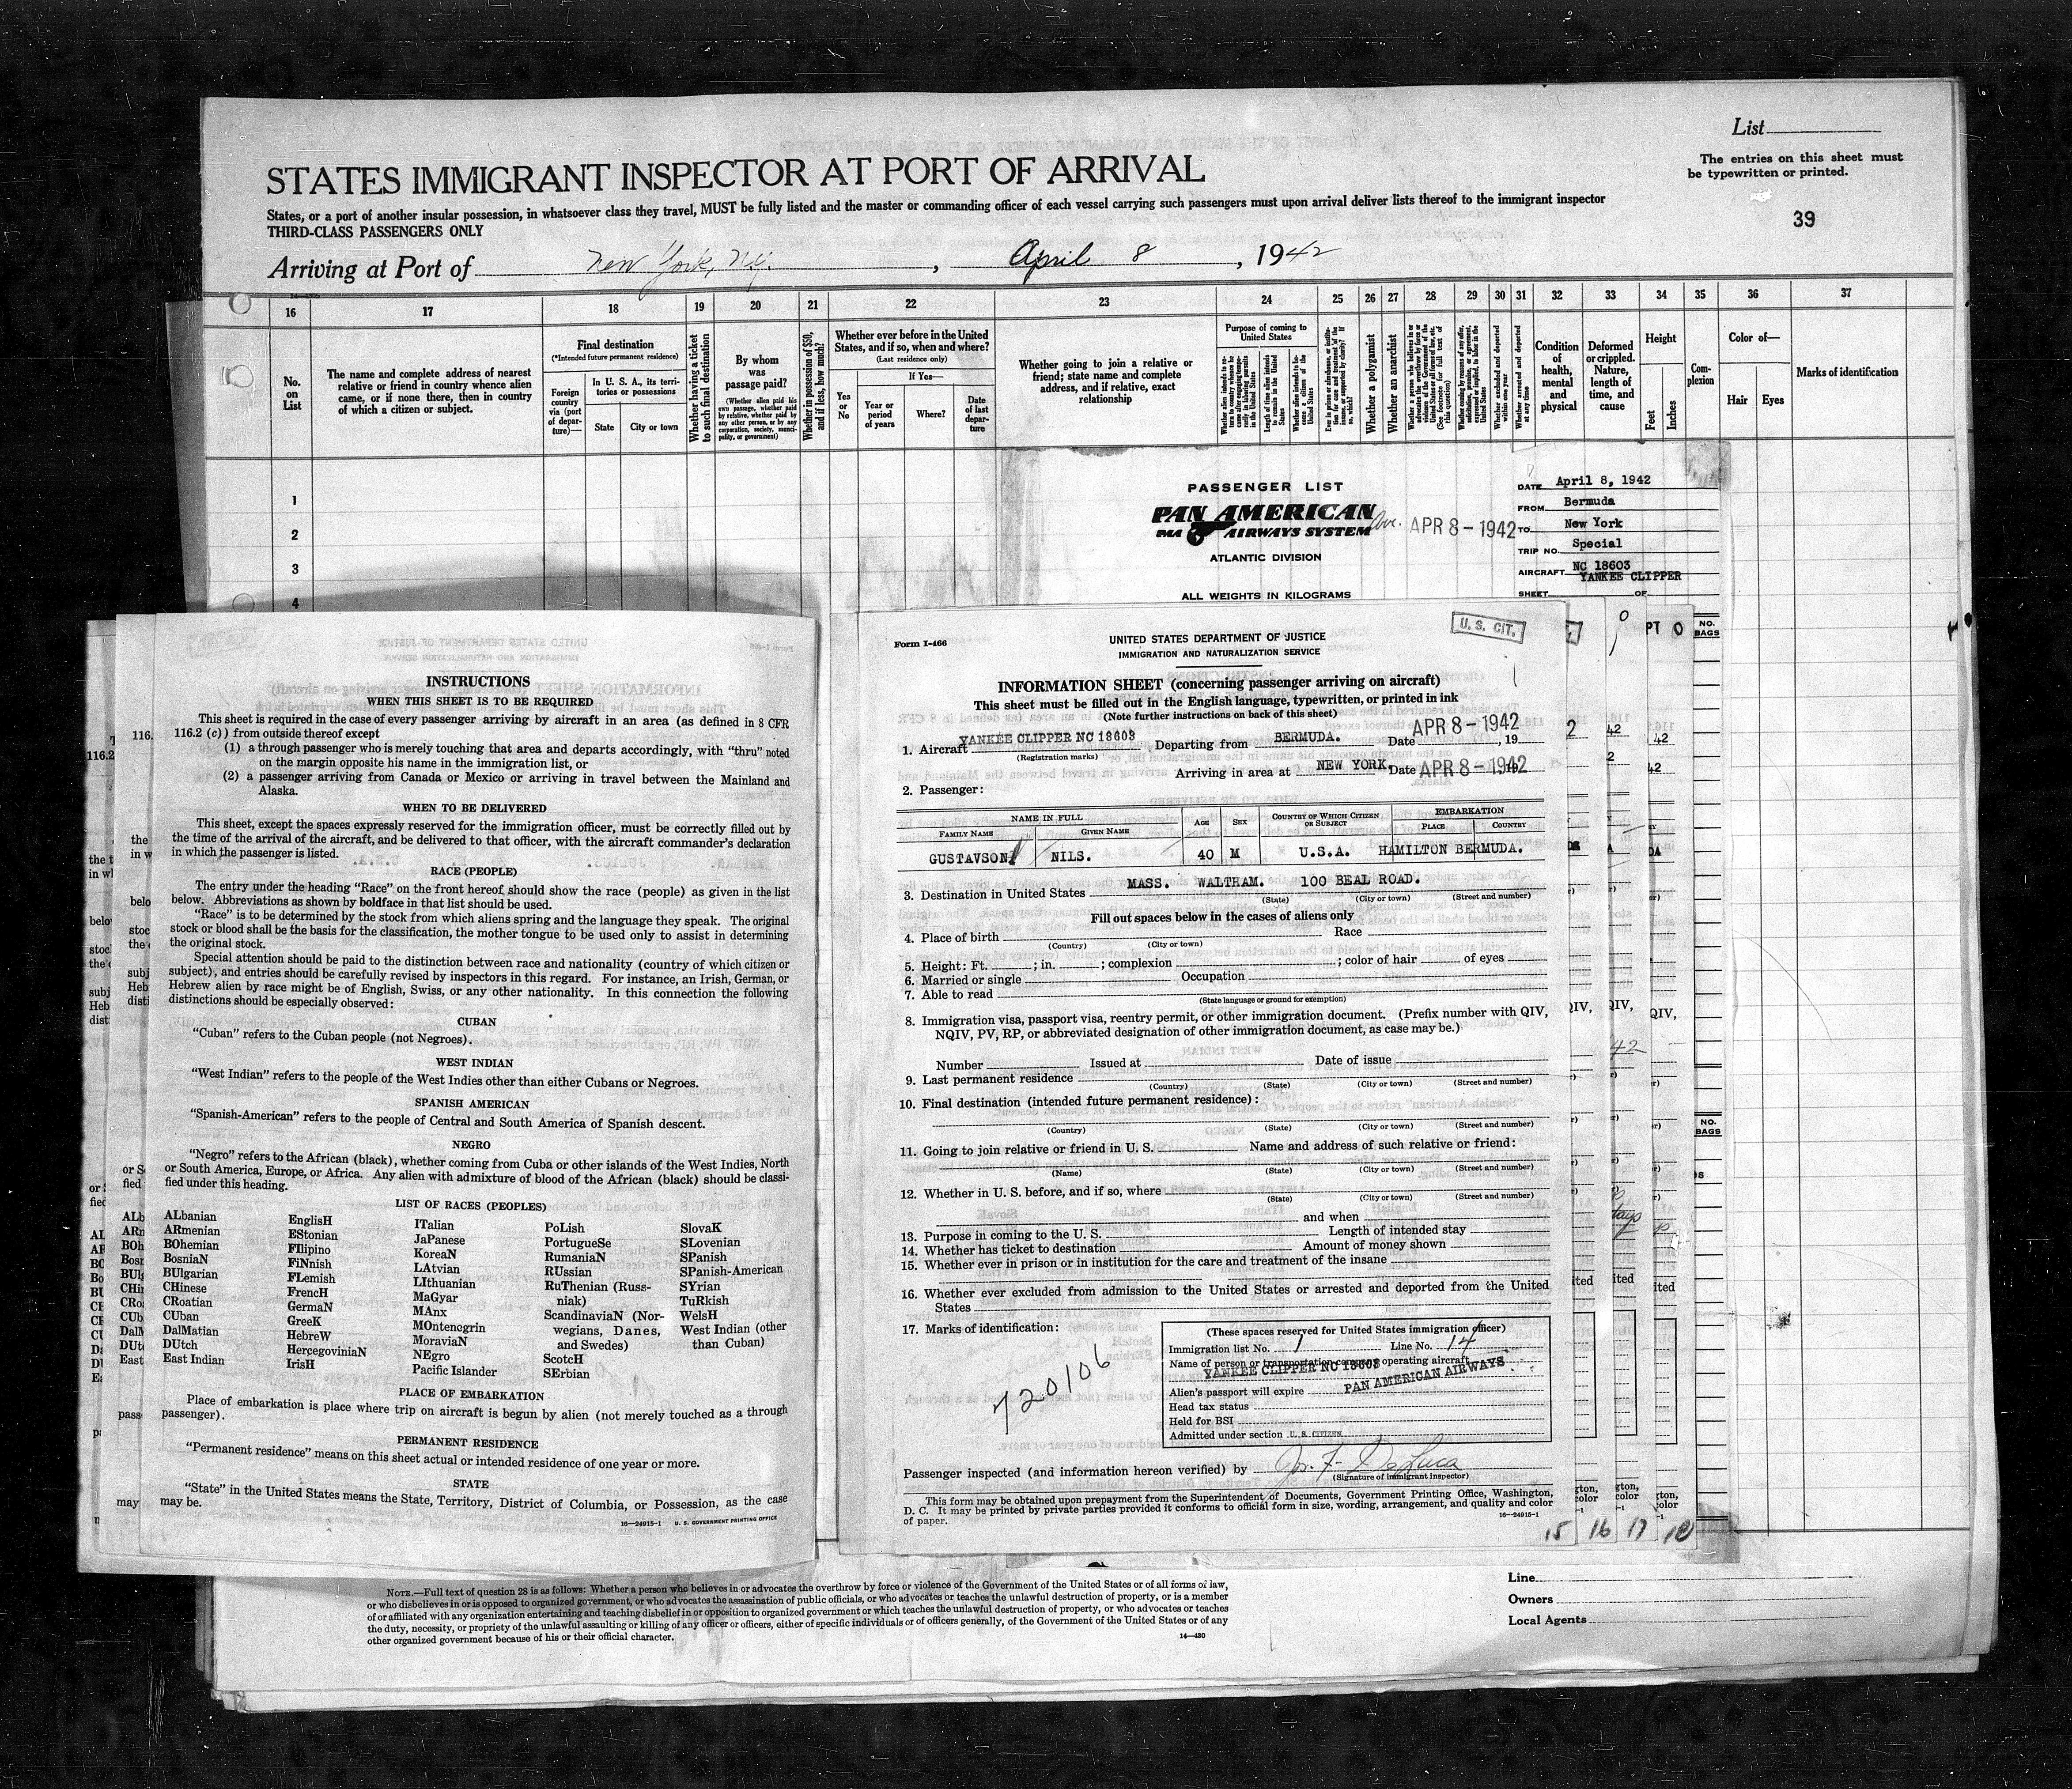 List
The entries on this sheet must
be typewritten or printed.
39
STATES IMMIGRANT INSPECTOR AT PORT OF ARRIVAL
States, or a port of another insular possession, in whatsoever class they travel, MUST be fully listed and the master or commanding officer of each vessel carrying such passengers must upon arrival deliver lists thereof to the immigrant inspector
THIRD-CLASS PASSENGERS ONLY
Arriving at Port of New York, N.Y. , April 8 , 1942
16 17 18 19 20 21 22 23 24 25 26 27 28 29 30 31 32 33 34 35 36 37
No. on List
The name and complete address of nearest
relative or friend in country whence alien
came, or if none there, then in country
of which a citizen or subject.
Final destination
(*Intended future permanent residence)
Foreign country via (port of departure)—
In U. S. A., its territories or possessions
State
City or town
Whether having a ticket to such final destination
By whom was passage paid?
(Whether alien paid his own passage, whether paid by relative, whether paid by any other person, or by any corporation, society, municipality, or government)
Whether in possession of $50, and if less, how much?
Whether ever before in the United
States, and if so, when and where?
(Last residence only)
If Yes—
Yes or No
Year or period of years
Where?
Date of last departure
Whether going to join a relative or
friend; state name and complete
address, and if relative, exact
relationship
Purpose of coming to United States
Length of time alien intends to remain in the United States
Whether a polygamist
Whether an anarchist
Whether arrested and deported at any time
Condition of health, mental and physical
Deformed or crippled. Nature, length of time, and cause
Height
Feet
Inches
Complexion
Color of—
Hair
Eyes
Marks of identification
1
2
3
4
PASSENGER LIST
PAN AMERICAN
PAA AIRWAYS SYSTEM
ATLANTIC DIVISION
ALL WEIGHTS IN KILOGRAMS
Arr. APR 8 - 1942
DATE April 8, 1942
FROM Bermuda
TO New York
TRIP NO. Special
AIRCRAFT NC 18603
YANKEE CLIPPER
SHEET OF
NO. BAGS
NO. BAGS
INSTRUCTIONS
WHEN THIS SHEET IS TO BE REQUIRED
This sheet is required in the case of every passenger arriving by aircraft in an area (as defined in 8 CFR
116.2 (c)) from outside thereof except
(1) a through passenger who is merely touching that area and departs accordingly, with "thru" noted
on the margin opposite his name in the immigration list, or
(2) a passenger arriving from Canada or Mexico or arriving in travel between the Mainland and
Alaska.
WHEN TO BE DELIVERED
This sheet, except the spaces expressly reserved for the immigration officer, must be correctly filled out by
the time of the arrival of the aircraft, and be delivered to that officer, with the aircraft commander's declaration
in which the passenger is listed.
RACE (PEOPLE)
The entry under the heading "Race" on the front hereof should show the race (people) as given in the list
below. Abbreviations as shown by boldface in that list should be used.
"Race" is to be determined by the stock from which aliens spring and the language they speak. The original
stock or blood shall be the basis for the classification, the mother tongue to be used only to assist in determining
the original stock.
Special attention should be paid to the distinction between race and nationality (country of which citizen or
subject), and entries should be carefully revised by inspectors in this regard. For instance, an Irish, German, or
Hebrew alien by race might be of English, Swiss, or any other nationality. In this connection the following
distinctions should be especially observed:
CUBAN
"Cuban" refers to the Cuban people (not Negroes).
WEST INDIAN
"West Indian" refers to the people of the West Indies other than either Cubans or Negroes.
SPANISH AMERICAN
"Spanish-American" refers to the people of Central and South America of Spanish descent.
NEGRO
"Negro" refers to the African (black), whether coming from Cuba or other islands of the West Indies, North
or South America, Europe, or Africa. Any alien with admixture of blood of the African (black) should be classi-
fied under this heading.
LIST OF RACES (PEOPLES)
ALbanian
ARmenian
BOhemian
BosniaN
BUlgarian
CHinese
CRoatian
CUban
DalMatian
DUtch
East Indian
EnglisH
EStonian
FIlipino
FiNnish
FLemish
FrencH
GermaN
GreeK
HebreW
HerçegoviniaN
IrisH
ITalian
JaPanese
KoreaN
LAtvian
LIthuanian
MaGyar
MAnx
MOntenegrin
MoraviaN
NEgro
Pacific Islander
PoLish
PortugueSe
RumaniaN
RUssian
RuThenian (Russ-
niak)
ScandinaviaN (Nor-
wegians, Danes,
and Swedes)
ScotcH
SErbian
SlovaK
SLovenian
SPanish
SPanish-American
SYrian
TuRkish
WelsH
West Indian (other
than Cuban)
PLACE OF EMBARKATION
Place of embarkation is place where trip on aircraft is begun by alien (not merely touched as a through
passenger).
PERMANENT RESIDENCE
"Permanent residence" means on this sheet actual or intended residence of one year or more.
STATE
"State" in the United States means the State, Territory, District of Columbia, or Possession, as the case
may be.
16—24915-1 U. S. GOVERNMENT PRINTING OFFICE
Form I-466
UNITED STATES DEPARTMENT OF JUSTICE
IMMIGRATION AND NATURALIZATION SERVICE
U. S. CIT.
INFORMATION SHEET (concerning passenger arriving on aircraft)
This sheet must be filled out in the English language, typewritten, or printed in ink
(Note further instructions on back of this sheet)
1. Aircraft YANKEE CLIPPER NC 18603 , Departing from BERMUDA. Date APR 8 - 1942 , 19
(Registration marks)
Arriving in area at NEW YORK, Date APR 8 - 1942
2. Passenger:
NAME IN FULL
FAMILY NAME GIVEN NAME AGE SEX COUNTRY OF WHICH CITIZEN OR SUBJECT EMBARKATION PLACE COUNTRY
GUSTAVSON NILS. 40 M U.S.A. HAMILTON BERMUDA.
3. Destination in United States MASS. WALTHAM. 100 BEAL ROAD.
(State) (City or town) (Street and number)
Fill out spaces below in the cases of aliens only
4. Place of birth Race
(Country) (City or town)
5. Height: Ft. ; in. ; complexion ; color of hair of eyes
6. Married or single Occupation
7. Able to read
(State language or ground for exemption)
8. Immigration visa, passport visa, reentry permit, or other immigration document. (Prefix number with QIV,
NQIV, PV, RP, or abbreviated designation of other immigration document, as case may be.)
Number Issued at Date of issue
9. Last permanent residence
(Country) (State) (City or town) (Street and number)
10. Final destination (intended future permanent residence):
(Country) (State) (City or town) (Street and number)
11. Going to join relative or friend in U. S. Name and address of such relative or friend:
(Name) (State) (City or town) (Street and number)
12. Whether in U. S. before, and if so, where
(State) (City or town) (Street and number)
and when
13. Purpose in coming to the U. S. Length of intended stay
14. Whether has ticket to destination Amount of money shown
15. Whether ever in prison or in institution for the care and treatment of the insane
16. Whether ever excluded from admission to the United States or arrested and deported from the United
States
17. Marks of identification:
720106
(These spaces reserved for United States immigration officer)
Immigration list No. 1 Line No. 14
Name of person or transportation company operating aircraft
YANKEE CLIPPER NC 18603
PAN AMERICAN AIRWAYS
Alien's passport will expire
Head tax status
Held for BSI
Admitted under section U. S. CITIZEN
Passenger inspected (and information hereon verified) by Jos. F. DeLuca
(Signature of immigrant inspector)
This form may be obtained upon prepayment from the Superintendent of Documents, Government Printing Office, Washington,
D. C. It may be printed by private parties provided it conforms to official form in size, wording, arrangement, and quality and color
of paper.
16—24915-1
15 16 17 18
NOTE.—Full text of question 28 is as follows: Whether a person who believes in or advocates the overthrow by force or violence of the Government of the United States or of all forms of law,
or who disbelieves in or is opposed to organized government, or who advocates the assassination of public officials, or who advocates or teaches the unlawful destruction of property, or is a member
of or affiliated with any organization entertaining and teaching disbelief in or opposition to organized government or which teaches the unlawful destruction of property, or who advocates or teaches
the duty, necessity, or propriety of the unlawful assaulting or killing of any officer or officers, either of specific individuals or of officers generally, of the Government of the United States or of any
other organized government because of his or their official character.
14—430
Line
Owners
Local Agents